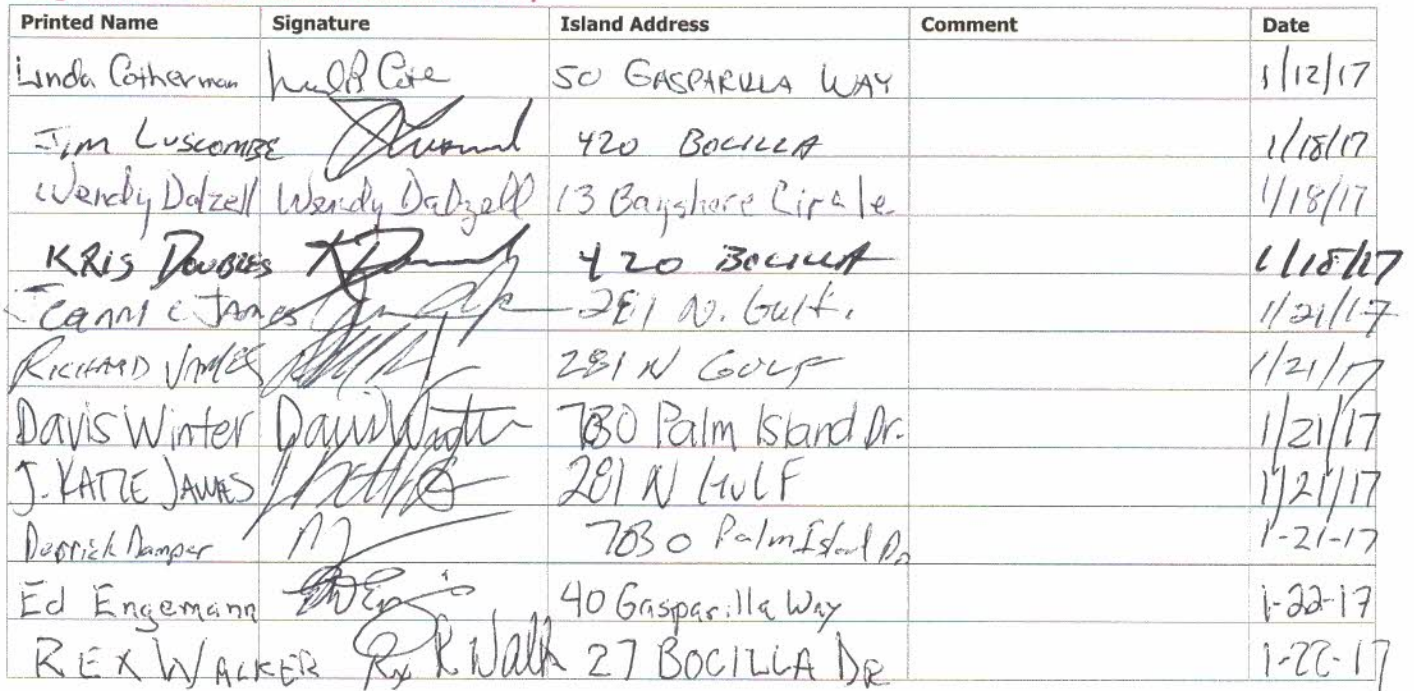 Printed Name Signature Island Address Comment Date
Linda Cotherman 50 GASPARILLA WAY 1/12/17
Jim LUSCOMBE 420 BOCILLA 1/18/17
Wendy Dalzell Wendy Dalzell 13 Bayshore Circle 1/18/17
KRIS DOUBLES 420 BOCILLA 1/18/17
Jeannie James 281 N. Gulf. 1/21/17
RICHARD JAMES 281 N GULF 1/21/17
Davis Winter Davis Winter 7080 Palm Island Dr. 1/21/17
J. KATIE JAMES 281 N GULF 1/21/17
Derrick Damper Palm Island Dr 1-21-17
Ed Engemann 40 Gasparilla Way 1-22-17
REX WALKER Rex R Walk 27 BOCILLA DR 1-22-17